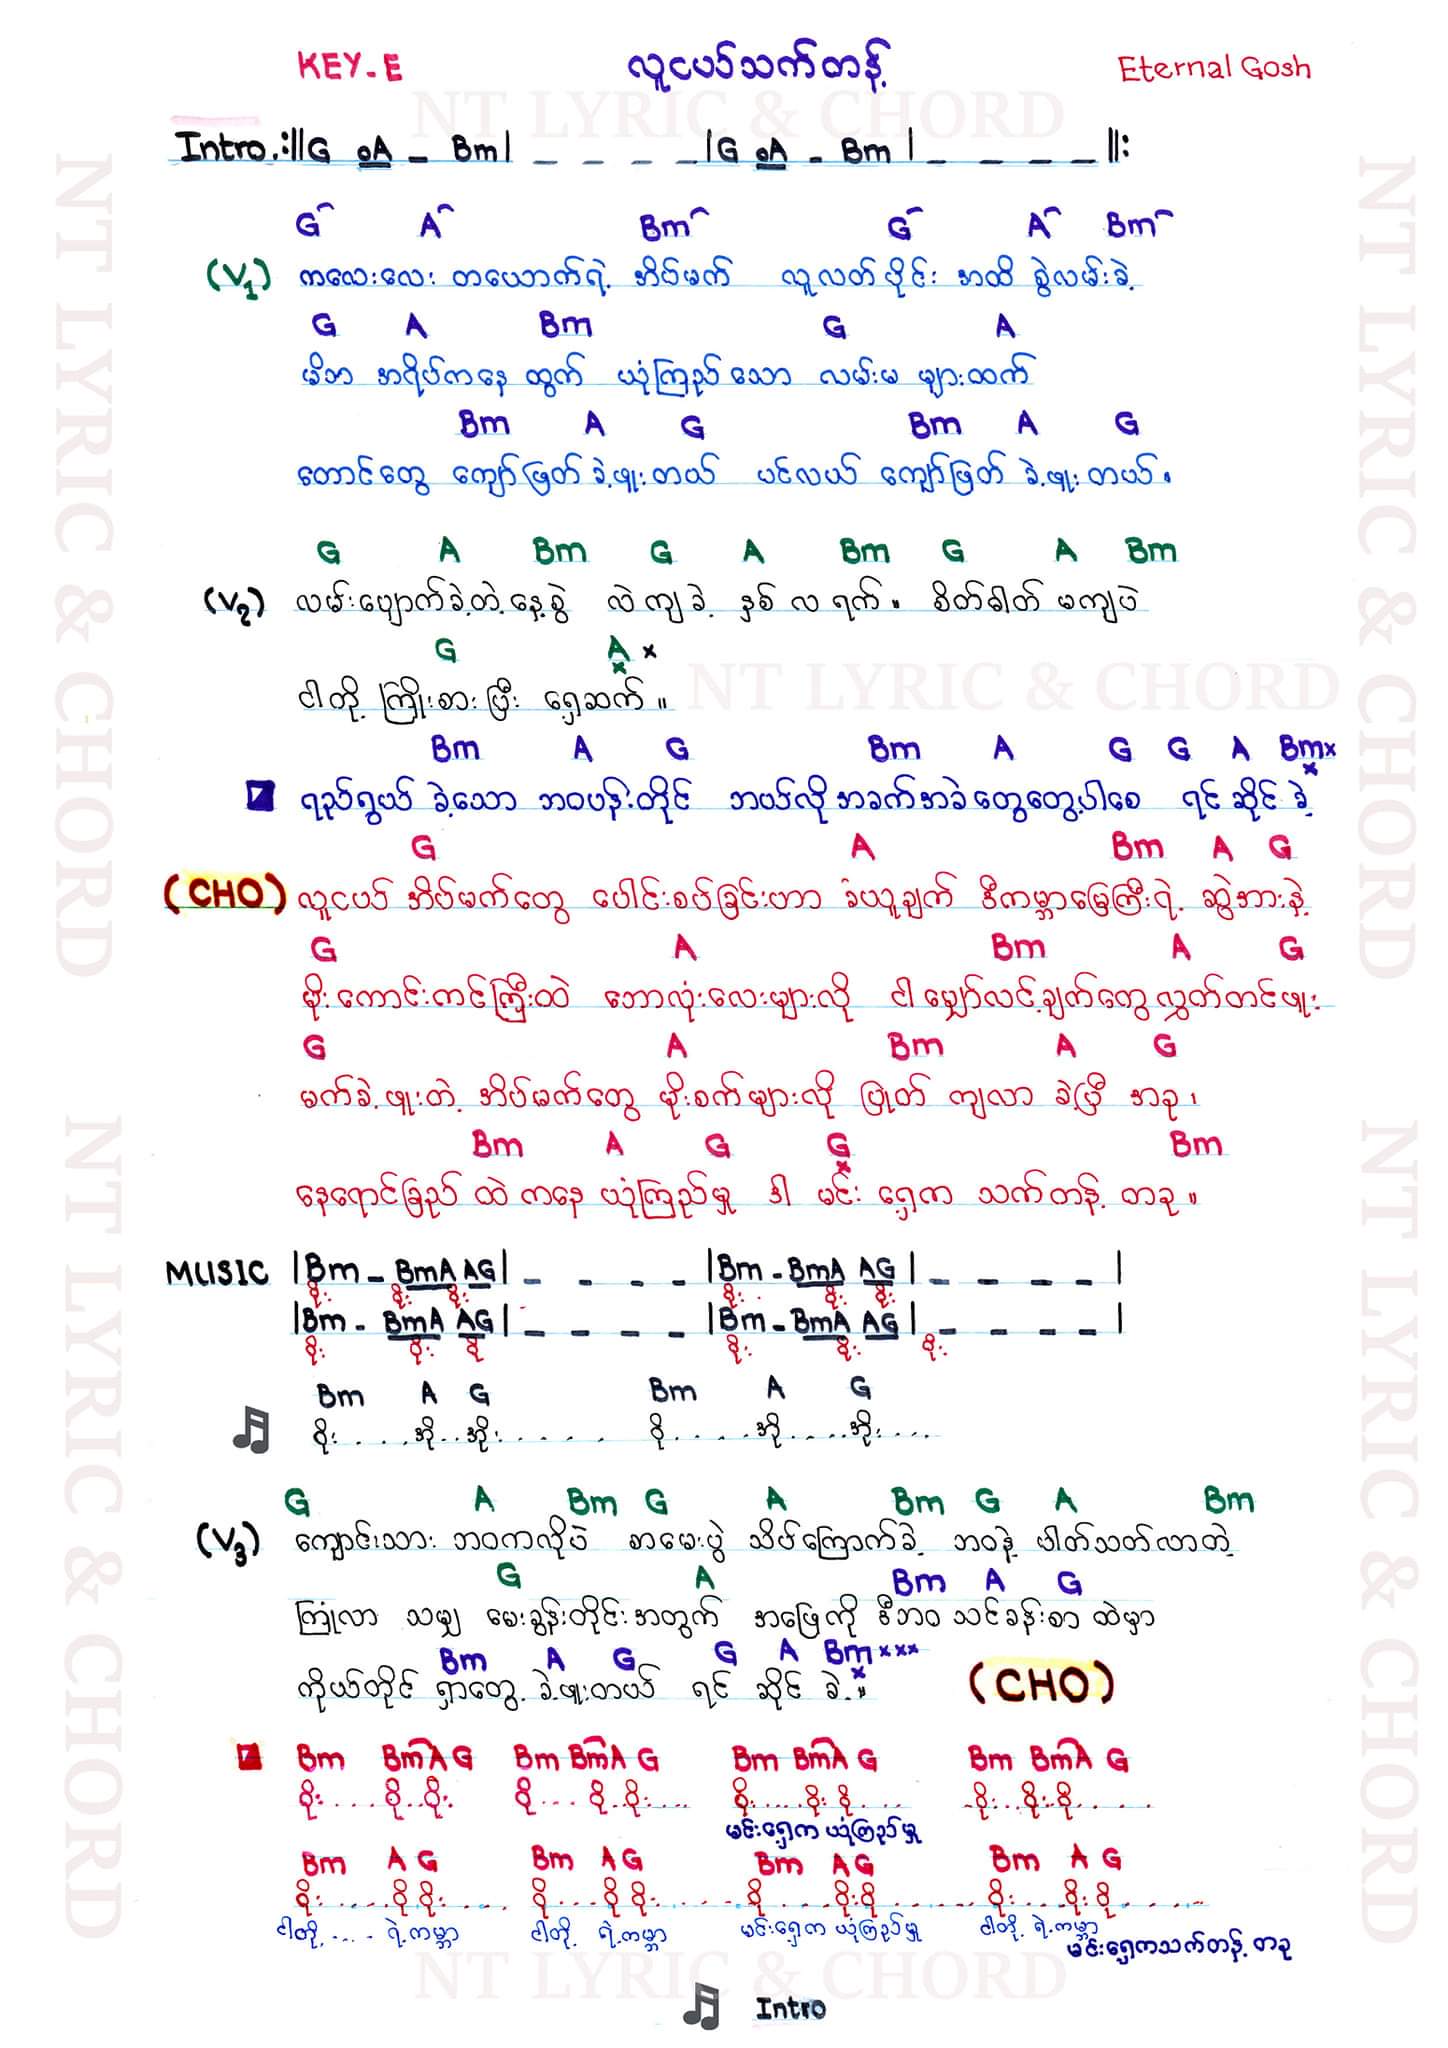 KEY-E လူငယ်သက်တန့် Eternal Gosh
NT LYRIC & CHORD
Intro.:||G oA - Bm| _ _ _ _ |G oA - Bm | _ _ _ _ ||:
G A Bm G A Bm
(V1) ကလေးလေး တယောက်ရဲ့ အိပ်မက် လူလတ်ပိုင်း အထိ စွဲလမ်းခဲ့
G A Bm G A
မိဘ အရိပ်ကနေ ထွက် ယုံကြည်သော လမ်းမ များထက်
Bm A G Bm A G
တောင်တွေ ကျော်ဖြတ်ခဲ့ဖူးတယ် ပင်လယ် ကျော်ဖြတ် ခဲ့ဖူးတယ်။
G A Bm G A Bm G A Bm
(V2) လမ်းပျောက်ခဲ့တဲ့နေ့စွဲ လဲကျခဲ့ နှစ် လ ရက်။ စိတ်ဓါတ် မကျပဲ
G A x
x
ငါတို့ ကြိုးစားပြီး ရှေ့ဆက်။
NT LYRIC & CHORD
Bm A G Bm A G G A Bmx
x
ရည်ရွယ် ခဲ့သော ဘဝပန်းတိုင် ဘယ်လိုအခက်အခဲတွေတွေ့ပါစေ ရင် ဆိုင် ခဲ့
G A Bm A G
(CHO) လူငယ် အိပ်မက်တွေ ပေါင်းစပ်ခြင်းဟာ ခံယူချက် ဒီကမ္ဘာမြေကြီးရဲ့ ဆွဲအားနဲ့
G A Bm A G
မိုးကောင်းကင်ကြီးထဲ ဘောလုံးလေးများလို ငါ မျှော်လင့်ချက်တွေ လွှတ်တင်ဖူး
G A Bm A G
မက်ခဲ့ဖူးတဲ့ အိပ်မက်တွေ မိုးစက်များလို ပြုတ် ကျလာ ခဲ့ပြီ အခု၊
Bm A G G Bm
x
နေရောင်ခြည် ထဲ ကနေ ယုံကြည်မှု ဒါ မင်း ရှေ့က သက်တန့် တခု။
MUSIC |Bm - BmA AG| _ _ _ _ |Bm - BmA AG | _ _ _ _ |
ဝိုး ဝိုး ဝိုး ဝိုး ဝိုး ဝိုး
|Bm - BmA AG| _ _ _ _ |Bm - BmA AG | _ _ _ _ |
ဝိုး ဝိုး ဝို ဝိုး ဝိုး ဝိုး
Bm A G Bm A G
ဝိုး....အို..အိုး..... ဝို.....အို....အိုး....
G A Bm G A Bm G A Bm
(V3) ကျောင်းသား ဘဝကလိုပဲ စာမေးပွဲ သိပ်ကြောက်ခဲ့ ဘဝနဲ့ ပါတ်သတ်လာတဲ့
G A Bm A G
ကြုံလာ သမျှ မေးခွန်းတိုင်းအတွက် အဖြေကို ဒီဘဝ သင်ခန်းစာ ထဲမှာ
Bm A G G A Bm xxx
x
ကိုယ်တိုင် ရှာတွေ့ ခဲ့ဖူးတယ် ရင် ဆိုင် ခဲ့။ (CHO)
Bm BmA G Bm BmA G Bm BmA G Bm BmA G
ဝိုး....ဝို..ဝိုး ဝို....ဝို..ဝိုး.... ဝိုး....ဝိုး ဝို.... ..ဝိုး...ဝိုး.ဝို.....
မင်းရှေ့က ယုံကြည်မှု
Bm A G Bm A G Bm A G Bm A G
ဝိုး.....ဝို ဝိုး..... ဝို....ဝို ဝိုး..... ဝို.....ဝိုးဝို...... ဝိုး....ဝိုး ဝို......
ငါတို့ .... ရဲ့ကမ္ဘာ ငါတို့ ရဲ့ကမ္ဘာ မင်းရှေ့က ယုံကြည်မှု ငါတို့ ရဲ့ကမ္ဘာ
မင်းရှေ့ကသက်တန့် တခု
NT LYRIC & CHORD
Intro
NT LYRIC & CHORD
NT LYRIC & CHORD
NT LYRIC & CHORD
NT LYRIC & CHORD